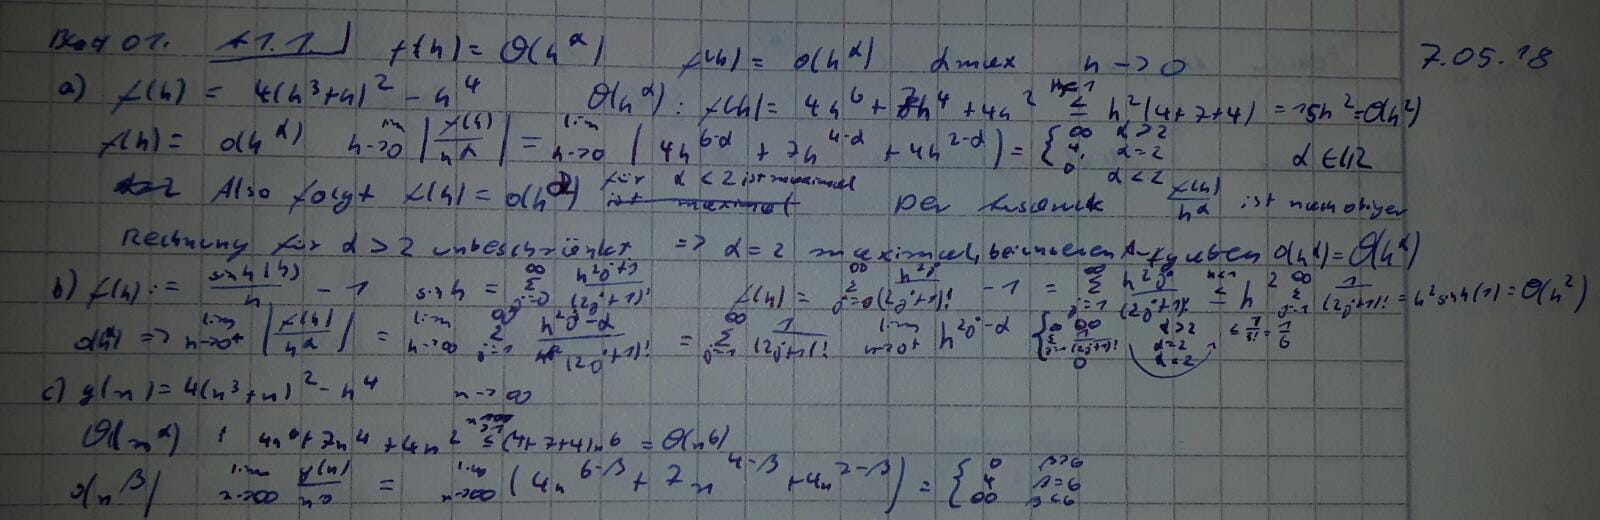 Blatt 01. A1.1. f(h) = O(h^α) f(h) = o(h^α) α max h -> 0 7.05.18
a) f(h) = 4(h³+h)² - h⁴ O(h^α): f(h) = 4h⁶ + 7h⁴ + 4h² ≤ h²(4+7+4) = 15h² = O(h²)
f(h) = o(h^α) lim h->0 |f(h)/h^α| = lim h->0 (4h^{6-α} + 7h^{4-α} + 4h^{2-α}) = { ∞ α>2, 4, α=2, 0 α<2 α ∈ ℝ
Also folgt f(h) = o(h^α) für α < 2 ist maximal Der Ausdruck f(h)/h^α ist nach obiger
Rechnung für α > 2 unbeschränkt => α = 2 maximal, bei unseren Aufgaben o(h^α) = O(h^α)
b) f(h) := sinh(h)/h - 1 sinh = Σ_{j=0}^∞ h^{2j+1}/(2j+1)! f(h) = Σ_{j=0}^∞ h^{2j}/(2j+1)! - 1 = Σ_{j=1}^∞ h^{2j}/(2j+1)! ≤ h² Σ_{j=1}^∞ 1/(2j+1)! = h² sinh(1) = O(h²)
o(h^α) => lim h->0⁺ |f(h)/h^α| = lim h->∞ Σ_{j=1}^∞ h^{2j-α}/(2j+1)! = Σ_{j=1}^∞ 1/(2j+1)! lim h->0⁺ h^{2j-α} { ∞ α>2, Σ_{j=1}^∞ 1/(2j+1)! α=2, 0 α<2 ≤ 1/3! = 1/6
c) g(n) = 4(n³+n)² - n⁴ n -> ∞
O(n^α) : 4n⁶ + 7n⁴ + 4n² ≤ (4+7+4)n⁶ = O(n⁶)
o(n^β) lim n->∞ g(n)/n^β = lim n->∞ (4n^{6-β} + 7n^{4-β} + 4n^{2-β}) = { 0 β>6, 4 β=6, ∞ β<6